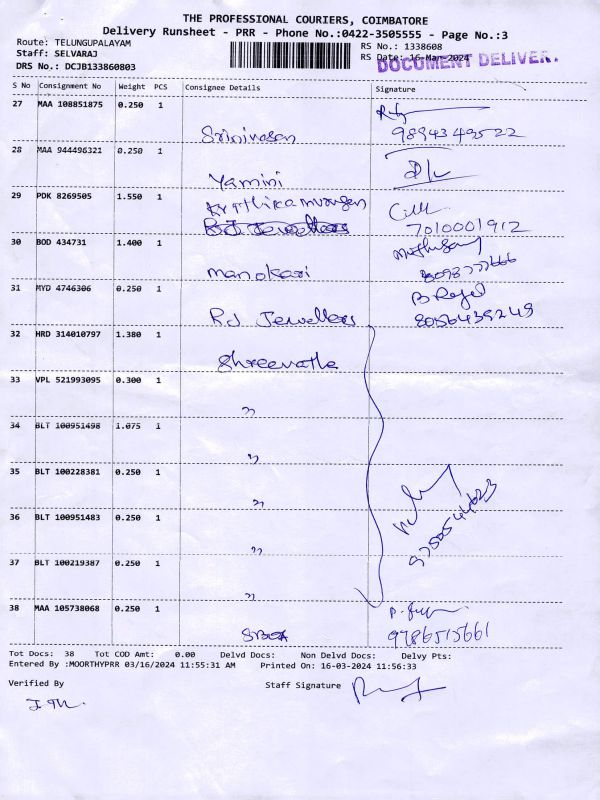 THE PROFESSIONAL COURIERS, COIMBATORE
Delivery Runsheet - PRR - Phone No.:0422-3505555 - Page No.:3
Route: TELUNGUPALAYAM
RS No.: 1338608
Staff: SELVARAJ
RS Date: 16-Mar-2024
DOCUMENT DELIVER
DRS No.: DCJB133860803
S No Consignment No Weight PCS Consignee Details Signature
27 MAA 108851875 0.250 1
Srinivasan
28 MAA 944496321 0.250 1
Yamini
29 PDK 8269505 1.550 1
7010001912
30 BOD 434731 1.400 1
manokari
31 MYD 4746306 0.250 1
RJ Jewellers 8056439249
32 HRD 314010797 1.380 1
33 VPL 521993095 0.300 1
"
34 BLT 100951498 1.075 1
"
35 BLT 100228381 0.250 1
"
36 BLT 100951483 0.250 1
"
37 BLT 100219387 0.250 1
"
38 MAA 105738068 0.250 1
9786515661
Tot Docs: 38 Tot COD Amt: 0.00 Delvd Docs: Non Delvd Docs: Delvy Pts:
Entered By :MOORTHYPRR 03/16/2024 11:55:31 AM Printed On: 16-03-2024 11:56:33
Verified By Staff Signature